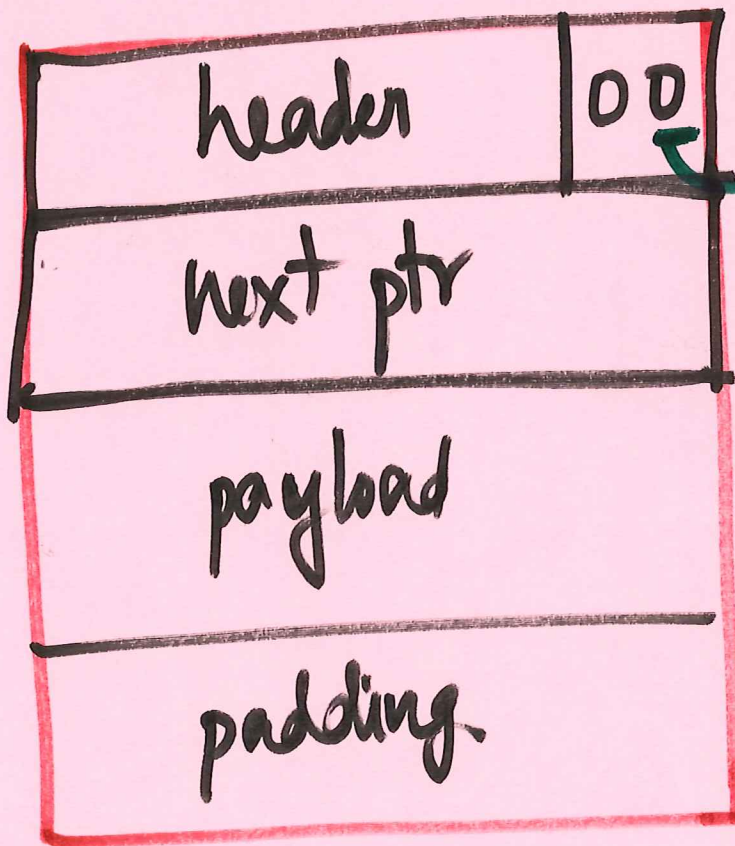 header 00
next ptr
payload
padding